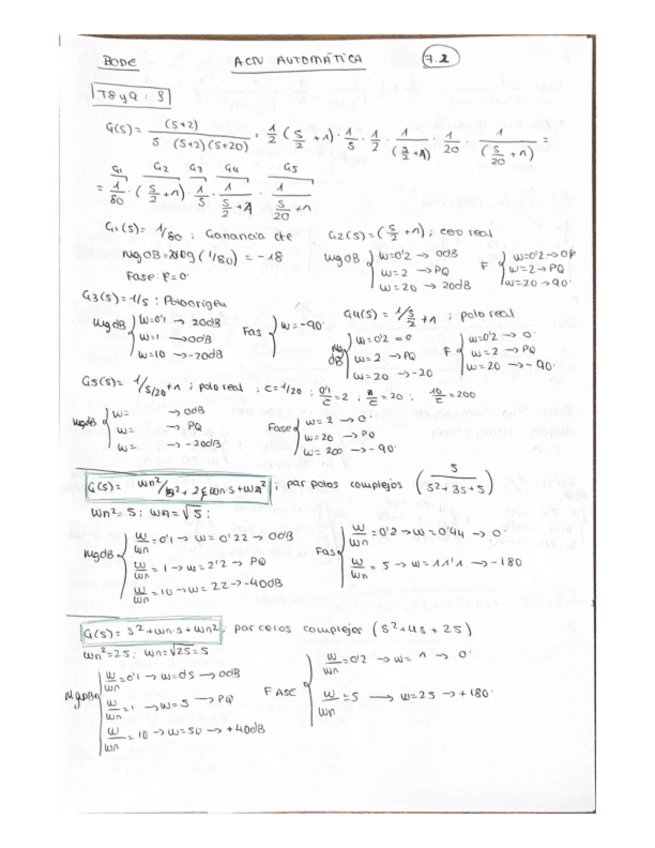 BODE ACN AUTOMÁTICA 7.2
T8 y 9 : 9
G(s) = (s+2) / s (s+2)(s+20) = 1/2 (s/2 + 1) · 1/s · 1/2 · 1/(s/2 + 1) · 1/20 · 1/(s/20 + 1) =
G1 G2 G3 G4 G5
= 1/80 · (s/2 + 1) · 1/s · 1/(s/2 + 1) · 1/(s/20 + 1)
G1(s) = 1/80 ; Ganancia cte
MgdB = 20log (1/80) = -18
Fase: φ=0·
G2(s) = (s/2 + 1) ; cero real
MgdB { w=0'2 → 0dB
w=2 → PQ
w=20 → 20dB
F { w=0'2 → 0·
w=2 → PQ
w=20 → 90·
G3(s) = 1/s : Polo origen
MgdB { w=0'1 → 20dB
w=1 → 0dB
w=10 → -20dB
Fas { w= -90·
G4(s) = 1/s/2 + 1 ; polo real
Mg dB { w=0'2 = 0
w=2 → PQ
w=20 → -20
F { w=0'2 → 0·
w=2 → PQ
w=20 → -90·
G5(s) = 1/s/20 + 1 ; polo real ; c = 1/20 ; 0'1/c = 2 ; 1/c = 20 ; 10/c = 200
MgdB { w= → 0dB
w= → PQ
w= → -20dB
Fase { w= 2 → 0·
w=20 → PQ
w= 200 → -90·
G(s) = wn²/s² + 2ξwn·s + wn² ; par polos complejos (5 / s² + 3s + 5)
wn² = 5 ; wn = √5 ;
MgdB { w/wn = 0'1 → w = 0'22 → 0dB
w/wn = 1 → w = 2'2 → PQ
w/wn = 10 → w = 22 → -40dB
Fas { w/wn = 0'2 → w = 0'44 → 0·
w/wn = 5 → w = 11'1 → -180
G(s) = s² + wn·s + wn² ; par ceros complejos (s² + 4s + 25)
wn² = 25 ; wn = √25 = 5
MgdB { w/wn = 0'1 → w = 0'5 → 0dB
w/wn = 1 → w = 5 → PQ
w/wn = 10 → w = 50 → +40dB
FASE { w/wn = 0'2 → w = 1 → 0·
w/wn = 5 → w = 25 → +180·